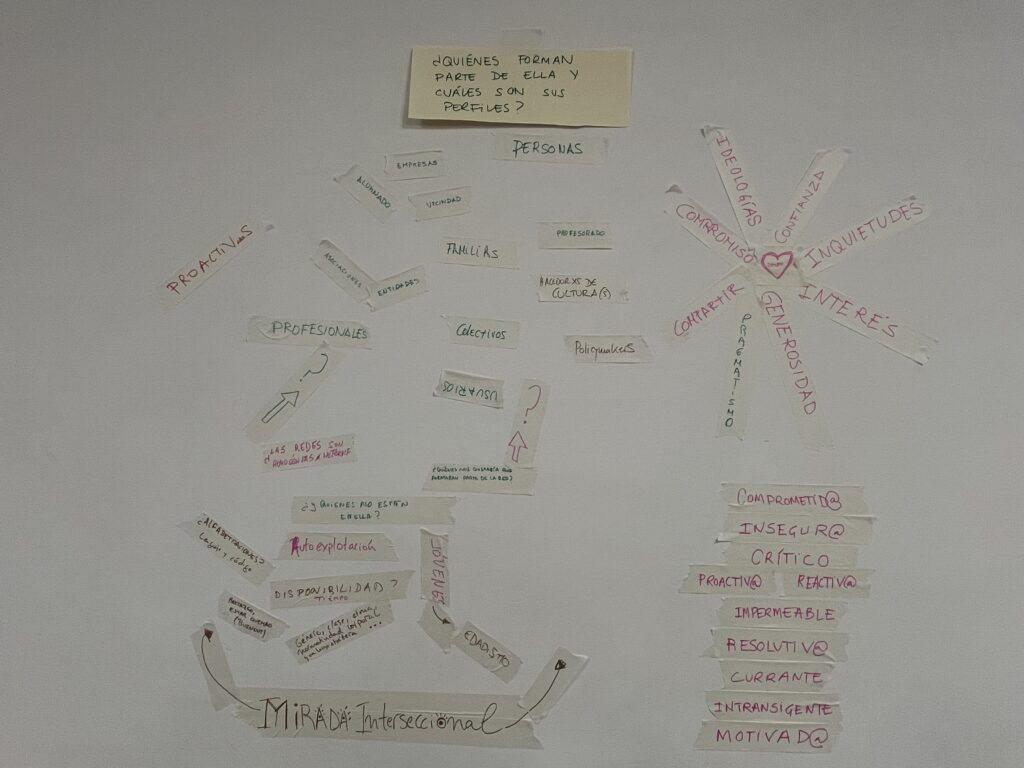 ¿QUIÉNES FORMAN
PARTE DE ELLA Y
CUÁLES SON SUS
PERFILES?
PERSONAS
EMPRESAS
ALUMNADO
VECINDAD
PROACTIV@S
ASOCIACIONES
ENTIDADES
FAMILIAS
PROFESORADO
HACEDORXS DE
CULTURA(S)
PROFESIONALES
COLECTIVOS
Policymakers
USUARIOS
?
?
¿LAS REDES SON
¿QUIÉNES NOS GUSTARÍA QUE
FORMARAN PARTE DE LA RED?
¿Y QUIENES NO ESTÁN
EN ELLA?
¿ALFABETIZACIONES?
Lenguaje y código
Autoexplotación
DISPONIBILIDAD?
TIEMPO
JÓVENES
EDADISMO
Género, clase, etnia,
normatividad corporal
...
MIRADA Interseccional
IDEOLOGÍAS
CONFIANZA
COMPROMISO
INQUIETUDES
COMPARTIR
INTERÉS
PRAGMATISMO
GENEROSIDAD
COMPROMETID@
INSEGUR@
CRÍTICO
PROACTIV@ REACTIV@
IMPERMEABLE
RESOLUTIV@
CURRANTE
INTRANSIGENTE
MOTIVAD@